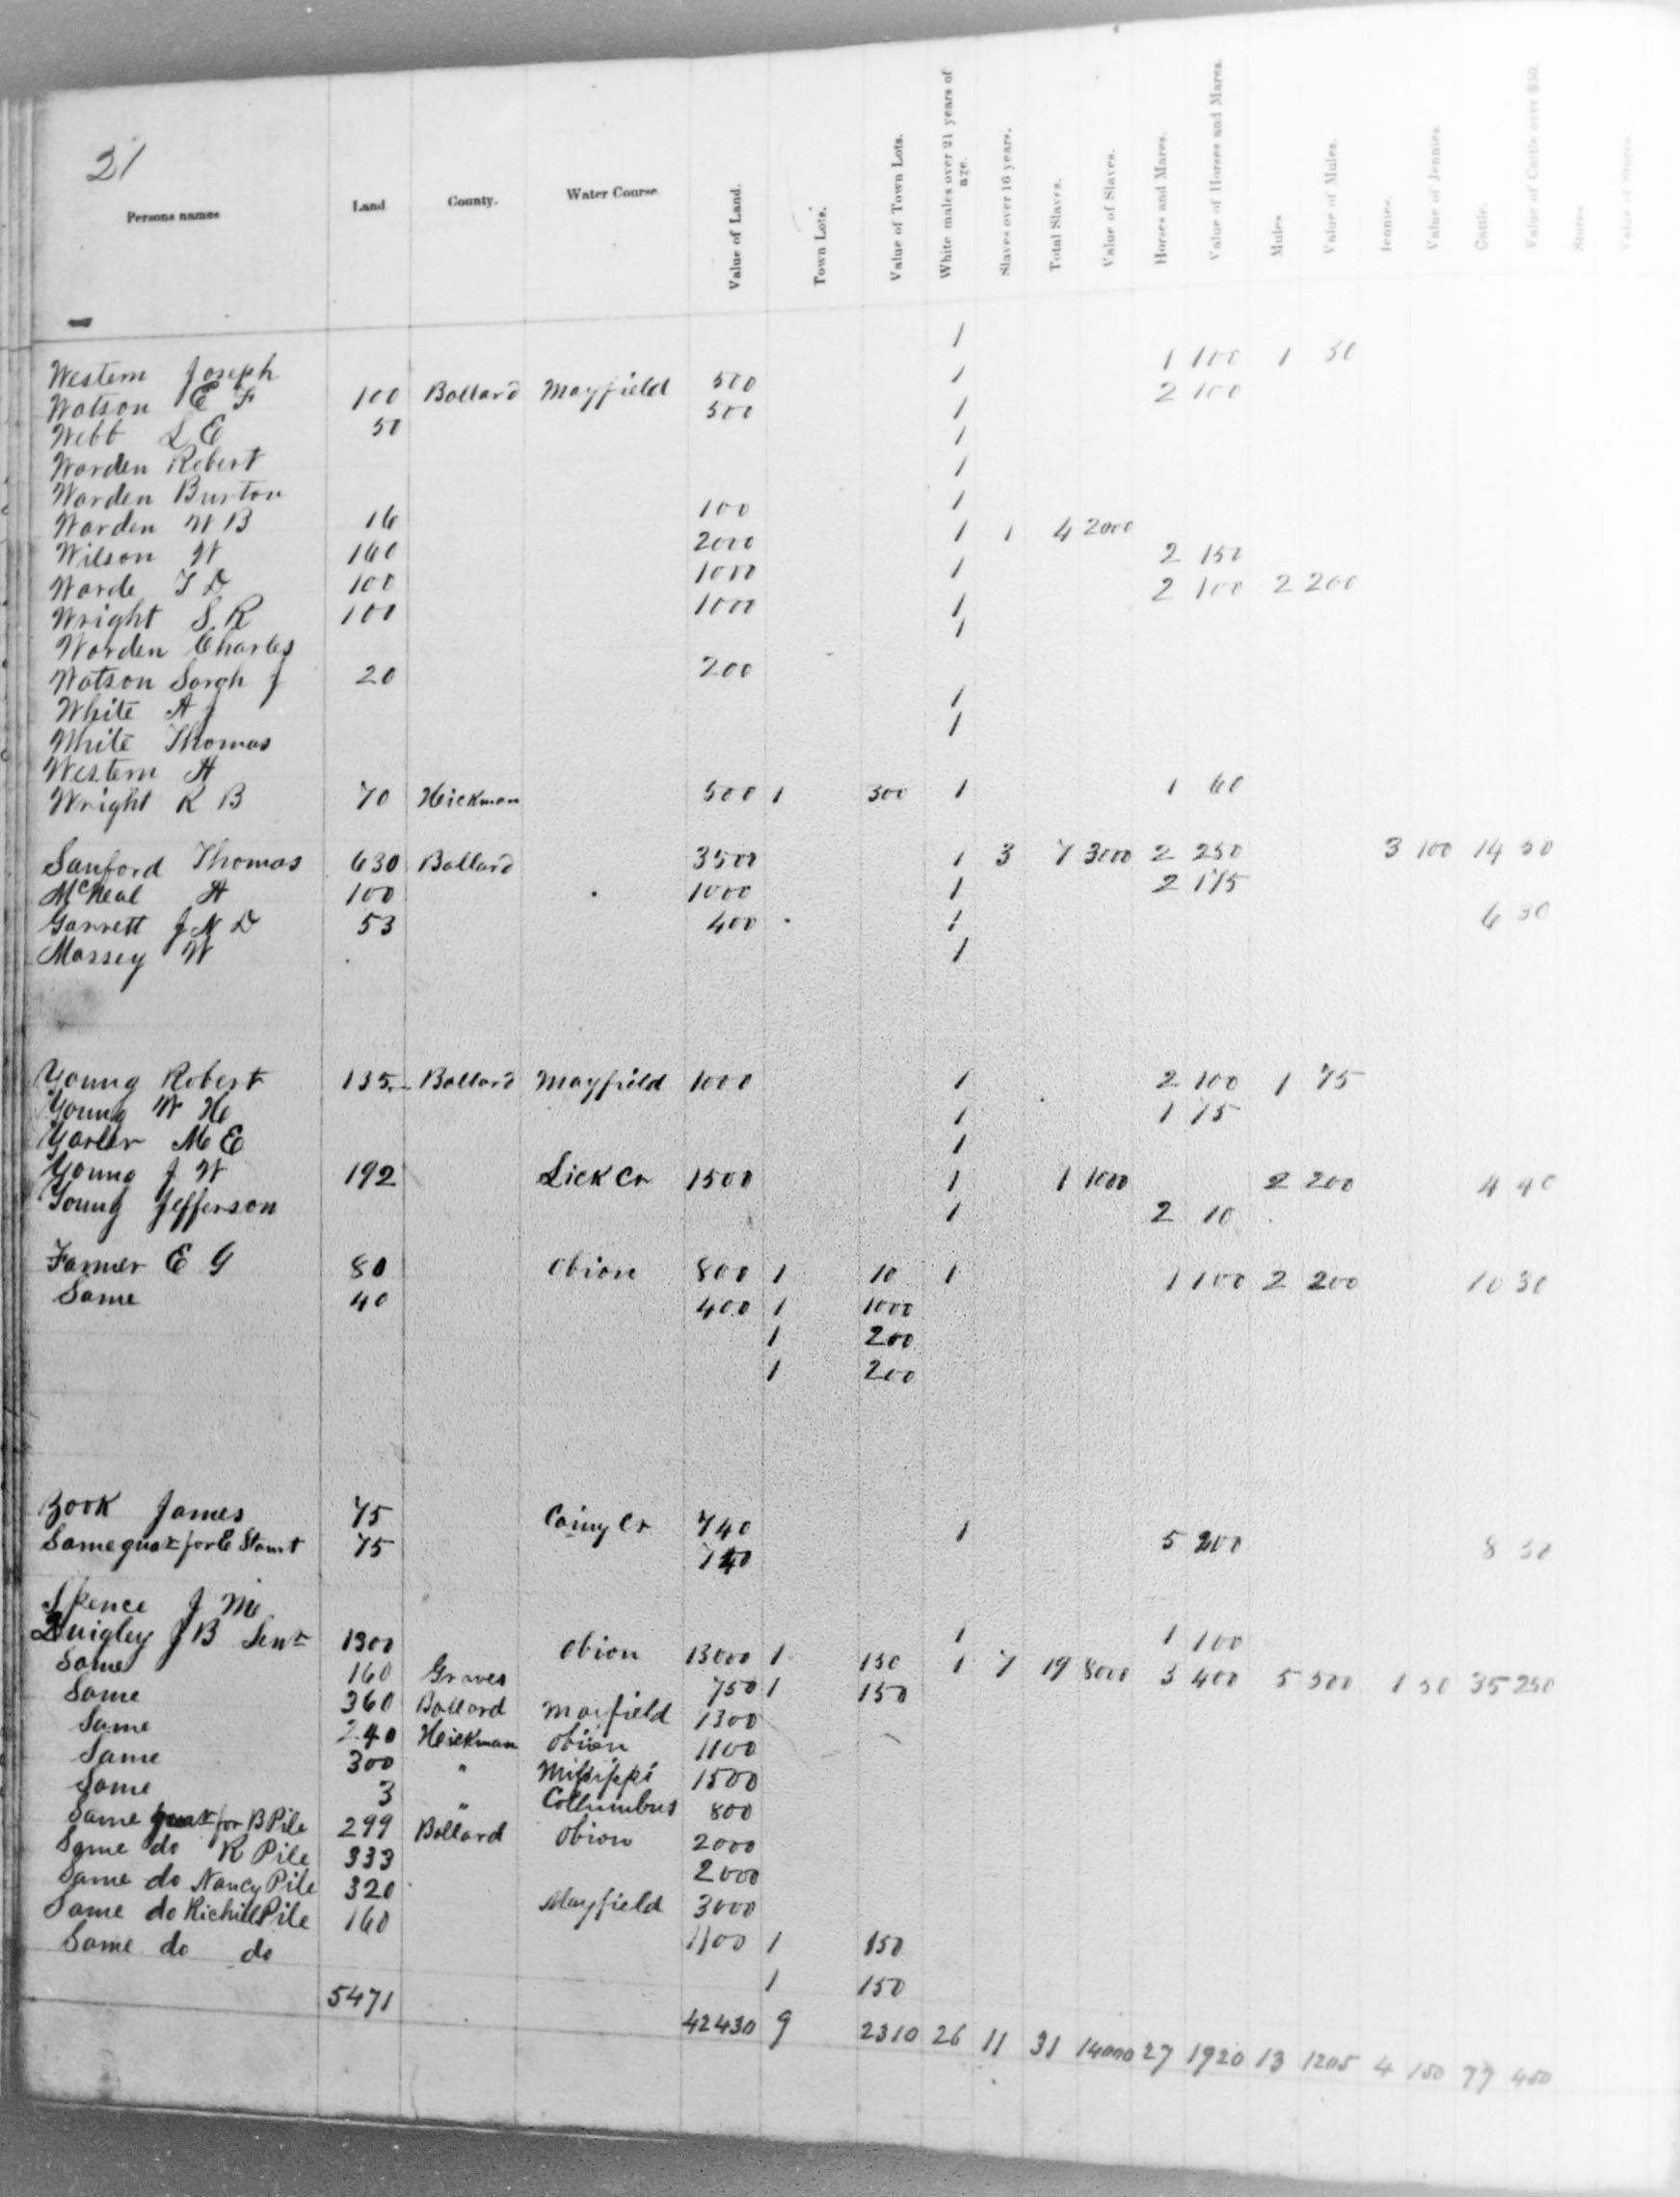 21
Persons names Land County. Water Course Value of Land. Town Lots. Value of Town Lots. White males over 21 years of age. Slaves over 16 years. Total Slaves. Value of Slaves. Horses and Mares. Value of Horses and Mares. Mules Value of Mules. Jennies. Value of Jennies. Cattle. Value of Cattle over $50. Stores. Value of Stores.
Western Joseph 1 1 100 1 50
Watson E F 100 Ballard Mayfield 500 1 2 100
Webb L E 50 500 1
Warden Robert 1
Warden Burton 1
Warden W B 16 100 1
Wilson W 160 2000 1 1 4 2000
Warde T D 100 1000 1 2 150
Wright S. R 100 1000 1 2 100 2 200
Warden Charles 1
Watson Sarah J 20 200
White A J 1
White Thomas 1
Western A
Wright R B 70 Hickman 500 1 300 1 1 60
Sanford Thomas 630 Ballard 3500 1 3 7 3000 2 250 3 100 14 50
McNeal A 100 1000 1 2 175
Garrett J N D 53 400 1 6 30
Massey W 1
Young Robert 135 Ballard Mayfield 1000 1 2 100 1 75
Young W H 1 1 75
M E 1
Young J W 192 Lick Cr 1500 1 1 1000 2 200 4 40
Young Jefferson 1 2 10
Farmer E G 80 Obion 800 1 10 1 1 100 2 200 10 30
Same 40 400 1 1000
1 200
1 200
James 75 Cr 740 1 5 200 8 50
Same for E 75 740
Spence J M 1 1 100
Quigley J B Senr 1300 Obion 13000 1 150 1 7 19 8000 3 400 5 500 1 50 35 250
Same 160 Graves 750 1 150
Same 360 Ballard Mayfield 1300
Same 240 Hickman Obion 1100
Same 300 " Missippi 1500
Same 3 " Collumbus 800
Same for B Pile 299 Ballard Obion 2000
Same do R Pile 333 2000
Same do Nancy Pile 320 Mayfield 3000
Same do Pile 160 1100 1 150
Same do do 1 150
5471 42430 9 2310 26 11 31 14000 27 1920 13 1205 4 150 77 450